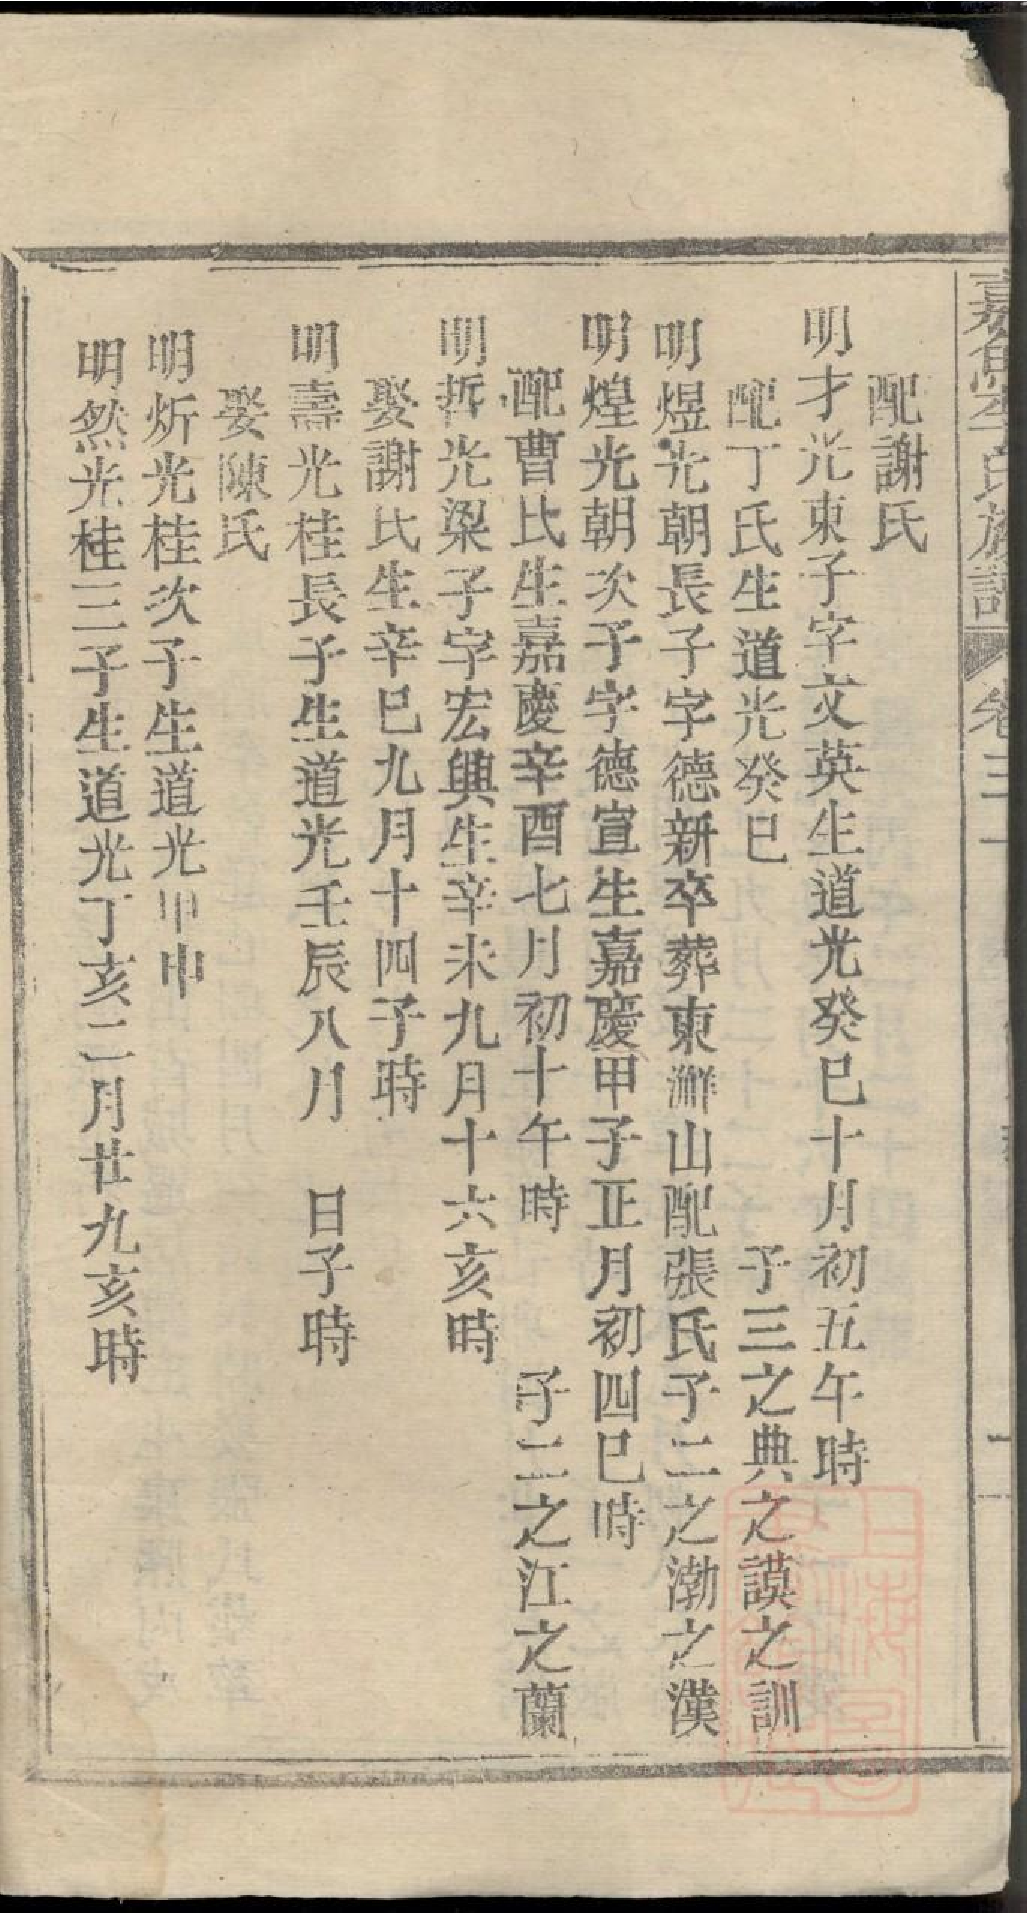 嘉魚李氏族譜 卷三十
配謝氏
明才光東子字文英生道光癸巳十月初五午時
配丁氏生道光癸巳 子三之典之謨之訓
明煜光朝長子字德新卒葬東瀰山配張氏子二之渤之漢
明煌光朝次子字德宣生嘉慶甲子正月初四巳時
配曹氏生嘉慶辛酉七月初十午時 子二之江之蘭
明哲光梁子字宏興生辛未九月十六亥時
娶謝氏生辛巳九月十四子時
明壽光桂長子生道光壬辰八月 日子時
娶陳氏
明炘光桂次子生道光甲申
明然光桂三子生道光丁亥二月廿九亥時